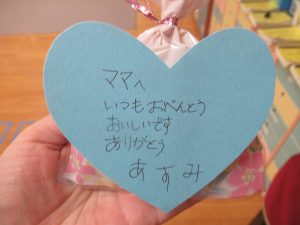 ママへ
いつもおべんとう
おいしいです
ありがとう
あすみ